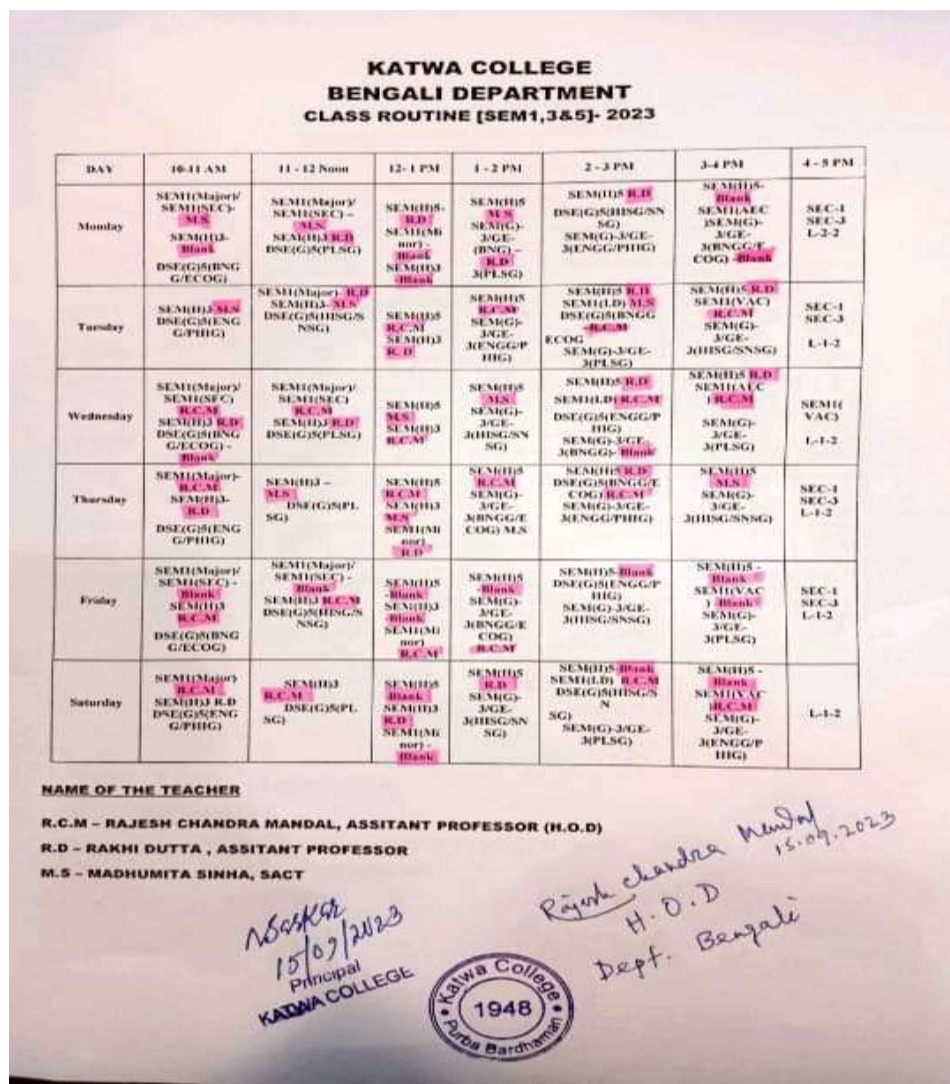 KATWA COLLEGE
BENGALI DEPARTMENT
CLASS ROUTINE [SEM1,3&5]- 2023
DAY 10-11 AM 11 - 12 Noon 12- 1 PM 1 - 2 PM 2 - 3 PM 3-4 PM 4 - 5 PM
Monday
SEM1(Major)/
SEM1(SEC)-
M.S
SEM(H)3-
Blank
DSE(G)5(BNG
G/ECOG)
SEM1(Major)/
SEM1(SEC) –
M.S
SEM(H)3 R.D
DSE(G)5(PLSG)
SEM(H)5-
R.D
SEM1(Mi
nor) -
Blank
SEM(H)3
-Blank
SEM(H)5
M.S
SEM(G)-
3/GE-
(BNG) –
R.D
3(PLSG)
SEM(H)5 R.D
DSE(G)5(HISG/SN
SG)
SEM(G)-3/GE-
3(ENGG/PHIG)
SEM(H)5-
Blank
SEM1(AEC
)SEM(G)-
3/GE-
3(BNGG/E
COG) -Blank
SEC-1
SEC-3
L-2-2
Tuesday
SEM(H)3 M.S
DSE(G)5(ENG
G/PHIG)
SEM1(Major)- R.D
SEM(H)3- M.S
DSE(G)5(HISG/S
NSG)
SEM(H)5
R.C.M
SEM(H)3
R.D
SEM(H)5
R.C.M
SEM(G)-
3/GE-
3(ENGG/P
HIG)
SEM(H)5 R.D
SEM1(I.D) M.S
DSE(G)5(BNGG
-R.C.M
ECOG
SEM(G)-3/GE-
3(PLSG)
SEM(H)5 R.D
SEM1(VAC)
R.C.M
SEM(G)-
3/GE-
3(HISG/SNSG)
SEC-1
SEC-3
L-1-2
Wednesday
SEM1(Major)/
SEM1(SEC)
R.C.M
SEM(H)3 R.D
DSE(G)5(BNG
G/ECOG) -
Blank
SEM1(Major)/
SEM1(SEC)
R.C.M
SEM(H)3 R.D
DSE(G)5(PLSG)
SEM(H)5
M.S
SEM(H)3
R.C.M
SEM(H)5
M.S
SEM(G)-
3/GE-
3(HISG/SN
SG)
SEM(H)5 R.D
SEM1(I.D) R.C.M
DSE(G)5(ENGG/P
HIG)
SEM(G)-3/GE-
3(BNGG)- Blank
SEM(H)5 R.D
SEM1(AEC
) R.C.M
SEM(G)-
3/GE-
3(PLSG)
SEM1(
VAC)
L-1-2
Thursday
SEM1(Major)-
R.C.M
SEM(H)3-
R.D
DSE(G)5(ENG
G/PHIG)
SEM(H)3 –
M.S
DSE(G)5(PL
SG)
SEM(H)5
R.C.M
SEM(H)3
M.S
SEM1(Mi
nor)
R.D
SEM(H)5
R.C.M
SEM(G)-
3/GE-
3(BNGG/E
COG) M.S
SEM(H)5 R.D
DSE(G)5(BNGG/E
COG) R.C.M
SEM(G)-3/GE-
3(ENGG/PHIG)
SEM(H)5
M.S
SEM(G)-
3/GE-
3(HISG/SNSG)
SEC-1
SEC-3
L-1-2
Friday
SEM1(Major)/
SEM1(SEC) -
Blank
SEM(H)3
R.C.M
DSE(G)5(BNG
G/ECOG)
SEM1(Major)/
SEM1(SEC) -
Blank
SEM(H)3 R.C.M
DSE(G)5(HISG/S
NSG)
SEM(H)5
-Blank
SEM(H)3
-Blank
SEM1(Mi
nor)
R.C.M
SEM(H)5
-Blank
SEM(G)-
3/GE-
3(BNGG/E
COG)
R.C.M
SEM(H)5-Blank
DSE(G)5(ENGG/P
HIG)
SEM(G)-3/GE-
3(HISG/SNSG)
SEM(H)5 -
Blank
SEM1(VAC
) -Blank
SEM(G)-
3/GE-
3(PLSG)
SEC-1
SEC-3
L-1-2
Saturday
SEM1(Major)
R.C.M
SEM(H)3 R.D
DSE(G)5(ENG
G/PHIG)
SEM(H)3
R.C.M
DSE(G)5(PL
SG)
SEM(H)5
Blank
SEM(H)3
R.D
SEM1(Mi
nor) -
Blank
SEM(H)5
R.D
SEM(G)-
3/GE-
3(HISG/SN
SG)
SEM(H)5-Blank
SEM1(I.D) R.C.M
DSE(G)5(HISG/S
N
SG)
SEM(G)-3/GE-
3(PLSG)
SEM(H)5 -
Blank
SEM1(VAC
)R.C.M
SEM(G)-
3/GE-
3(ENGG/P
HIG)
L-1-2
NAME OF THE TEACHER
R.C.M – RAJESH CHANDRA MANDAL, ASSITANT PROFESSOR (H.O.D)
R.D – RAKHI DUTTA , ASSITANT PROFESSOR
M.S – MADHUMITA SINHA, SACT
Rajesh Chandra Mandal
15.09.2023
H.O.D
Dept. Bengali
15/09/2023
Principal
KATWA COLLEGE
Katwa College
1948
Purba Bardhaman